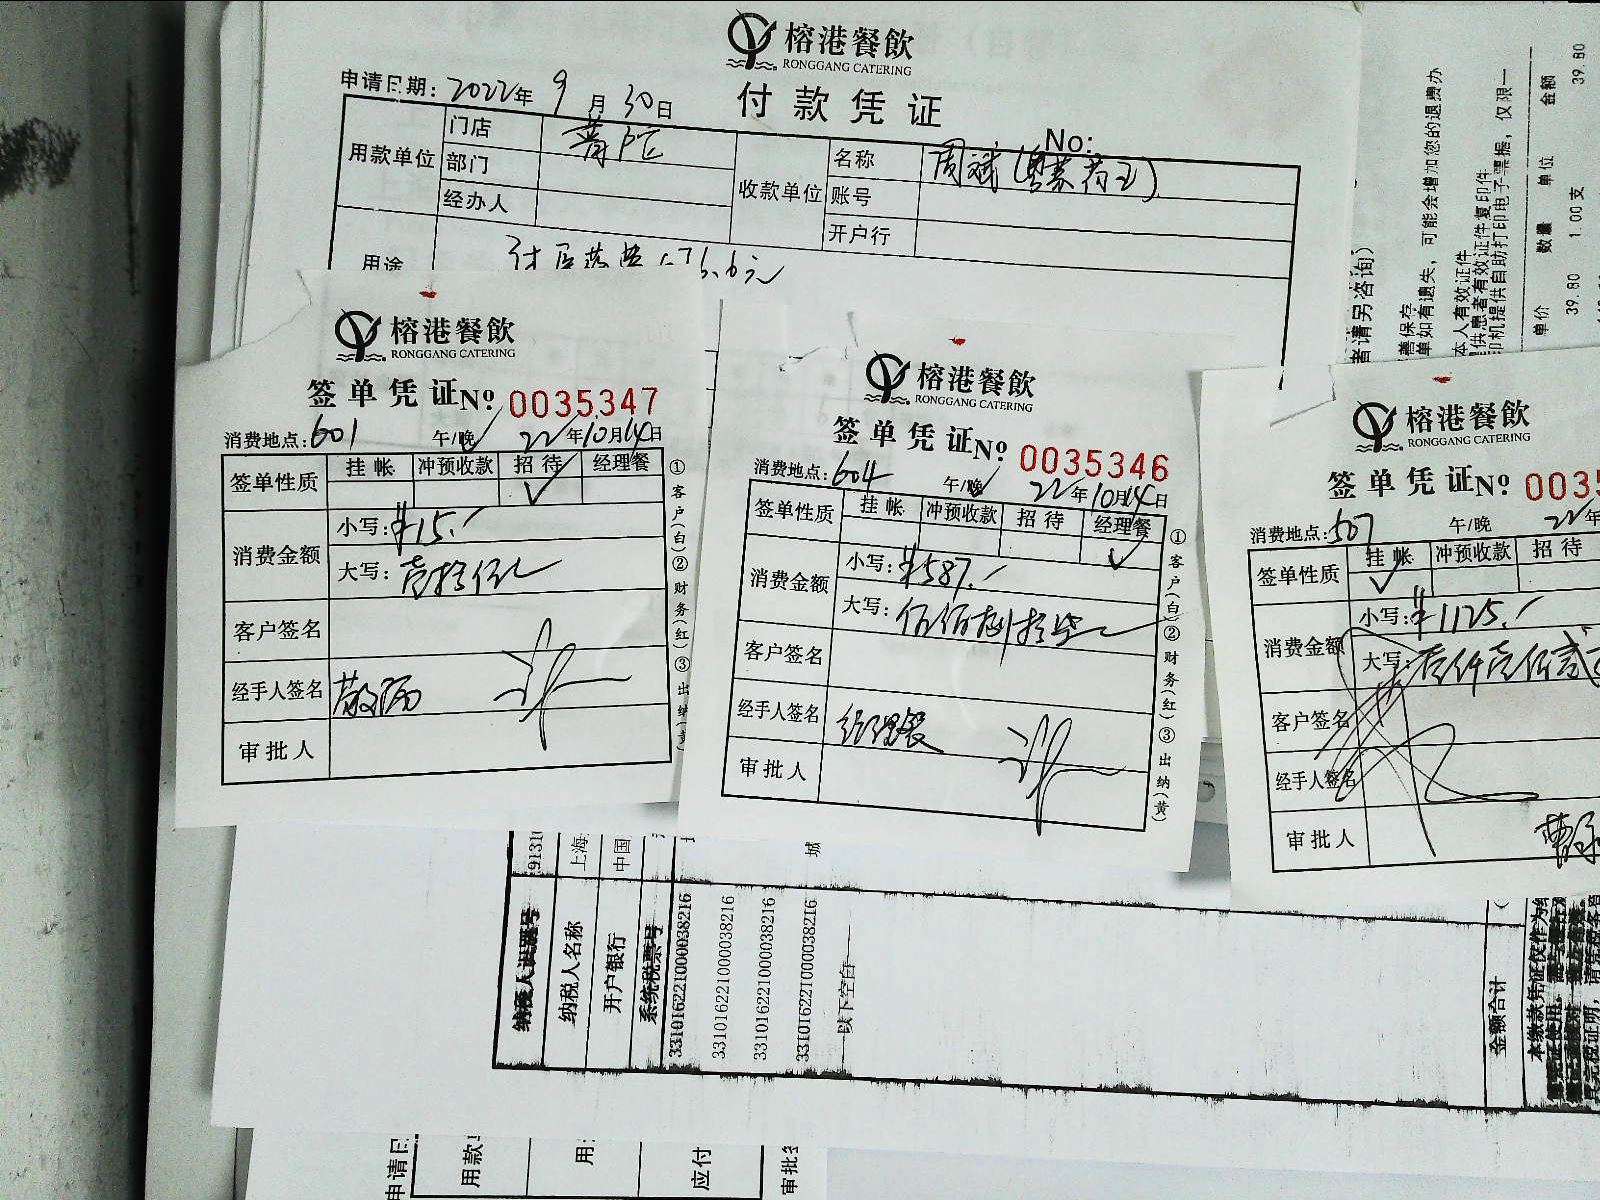 榕港餐飲
RONGGANG CATERING
付款凭证
申请日期：2022年 9月 30日
No:
用款单位 门店 普陀 收款单位 名称 周斌
部门 账号
经办人 开户行
用途
榕港餐飲
RONGGANG CATERING
签单凭证 No 0035347
消费地点：601 午/晚 22年10月14日
签单性质 挂帐 冲预收款 招待 经理餐
✓
消费金额 小写：¥15.-
大写：壹拾伍元
客户签名
经手人签名
审批人
①客户(白)②财务(红)③出纳(黄)
榕港餐飲
RONGGANG CATERING
签单凭证 No 0035346
消费地点：604 午/晚 22年10月14日
签单性质 挂帐 冲预收款 招待 经理餐
✓
消费金额 小写：¥587.-
大写：伍佰捌拾柒元
客户签名
经手人签名 经理餐
审批人
①客户(白)②财务(红)③出纳(黄)
榕港餐飲
RONGGANG CATERING
签单凭证 No 0035
消费地点：507 午/晚 22年
签单性质 挂帐 冲预收款 招待
✓
消费金额 小写：¥1125.-
大写：壹仟壹佰贰
客户签名
经手人签名
审批人
者请另咨询）
善保存
单如有遗失，可能会增加您的退费办
本人有效证件
提供患者有效证件复印件
印机提供自助打印电子票据，仅限一
单价 数量 单位 金额
39.80 1.00 支 39.80
纳税人识别号 91310
纳税人名称 上海
开户银行 中国
系统税票号
331016221000038216
331016221000038216
331016221000038216
331016221000038216 城
以下空白
金额合计
本缴款凭证仅作为纳
申请日
用款
用
应付
审批